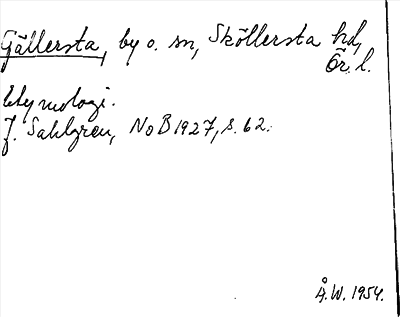 Gällersta, by o. sn, Sköllersta hd,
Ör. l.
Etymologi.
J. Sahlgren, NoB 1927, s. 62.
Å.W. 1954.